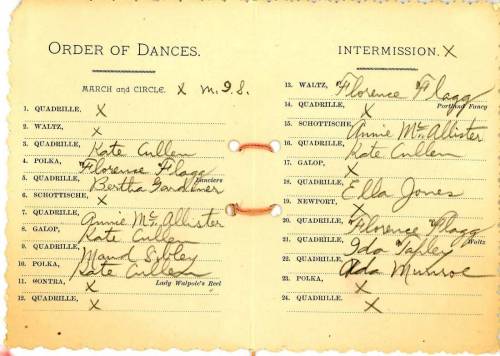 ORDER OF DANCES.
MARCH and CIRCLE. X M. 9 S.
1. QUADRILLE, X
2. WALTZ, X
3. QUADRILLE, Kate Cullen
4. POLKA, Florence Flagg
5. QUADRILLE, Lanciers Bertha Gardiner
6. SCHOTTISCHE, X
7. QUADRILLE, Annie McAllister
8. GALOP, Kate Culle
9. QUADRILLE, Maud Sibley
10. POLKA, Kate Cullen
11. CONTRA, X Lady Walpole's Reel
12. QUADRILLE, X
INTERMISSION. X
13. WALTZ, Florence Flagg
14. QUADRILLE, X Portland Fancy
15. SCHOTTISCHE, Annie McAllister
16. QUADRILLE, Kate Cullen
17. GALOP, X
18. QUADRILLE, Ella Jones
19. NEWPORT, X
20. QUADRILLE, Florence Flagg
21. QUADRILLE, Waltz Ida Tapley
22. QUADRILLE, Ada Munroe
23. POLKA, X
24. QUADRILLE, X